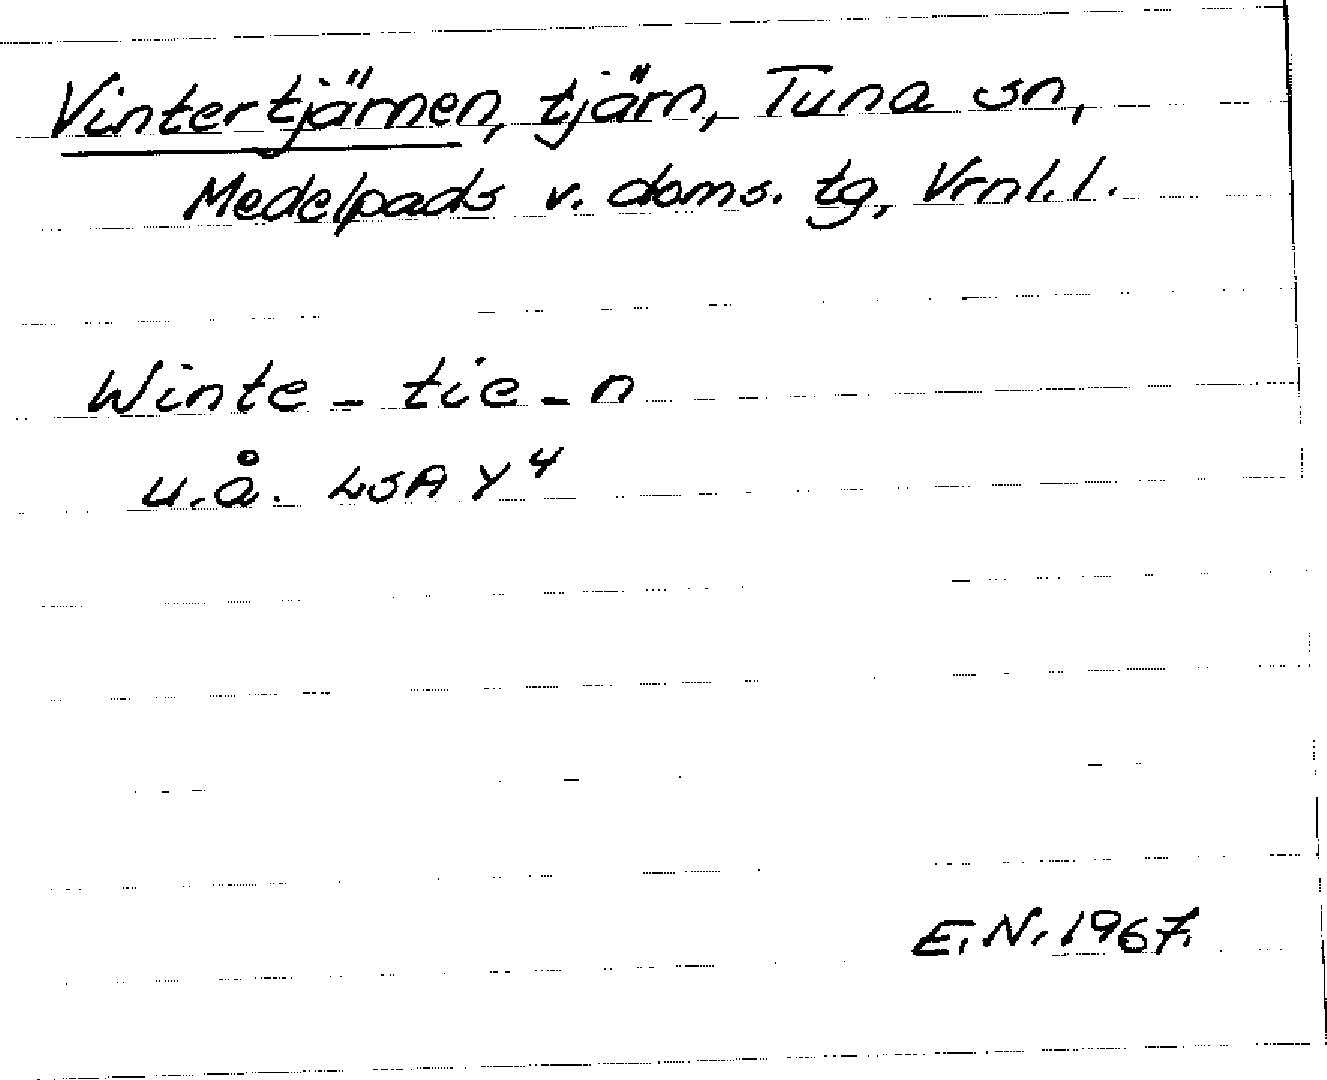 Vintertjärnen, tjärn, Tuna sn,
Medelpads v. doms. tg, Vrnl. l.
Winte - tie - n
u.å. LSA Y⁴
E.N. 1967.